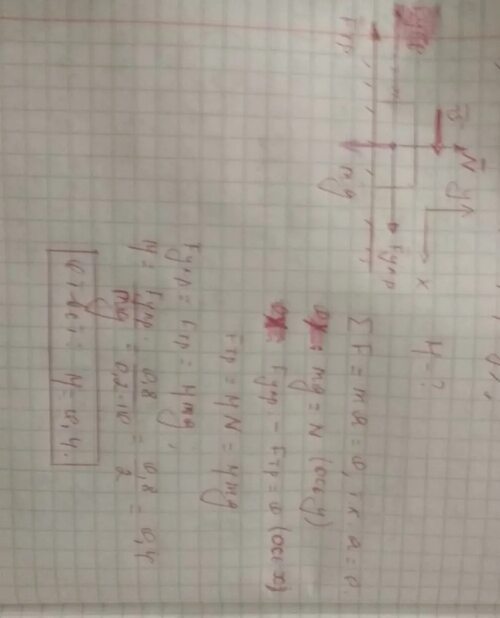 μ - ?
N
y
x
Fтр
Fупр
mg
ΣF = ma = 0, т.к. a = 0.
mg = N (ось y)
Fупр - Fтр = 0 (ось x)
Fтр = μN = μmg
Fупр = Fтр = μmg,
μ = Fупр/mg = 0,8/0,2·10 = 0,8/2 = 0,4
Ответ: μ = 0,4.